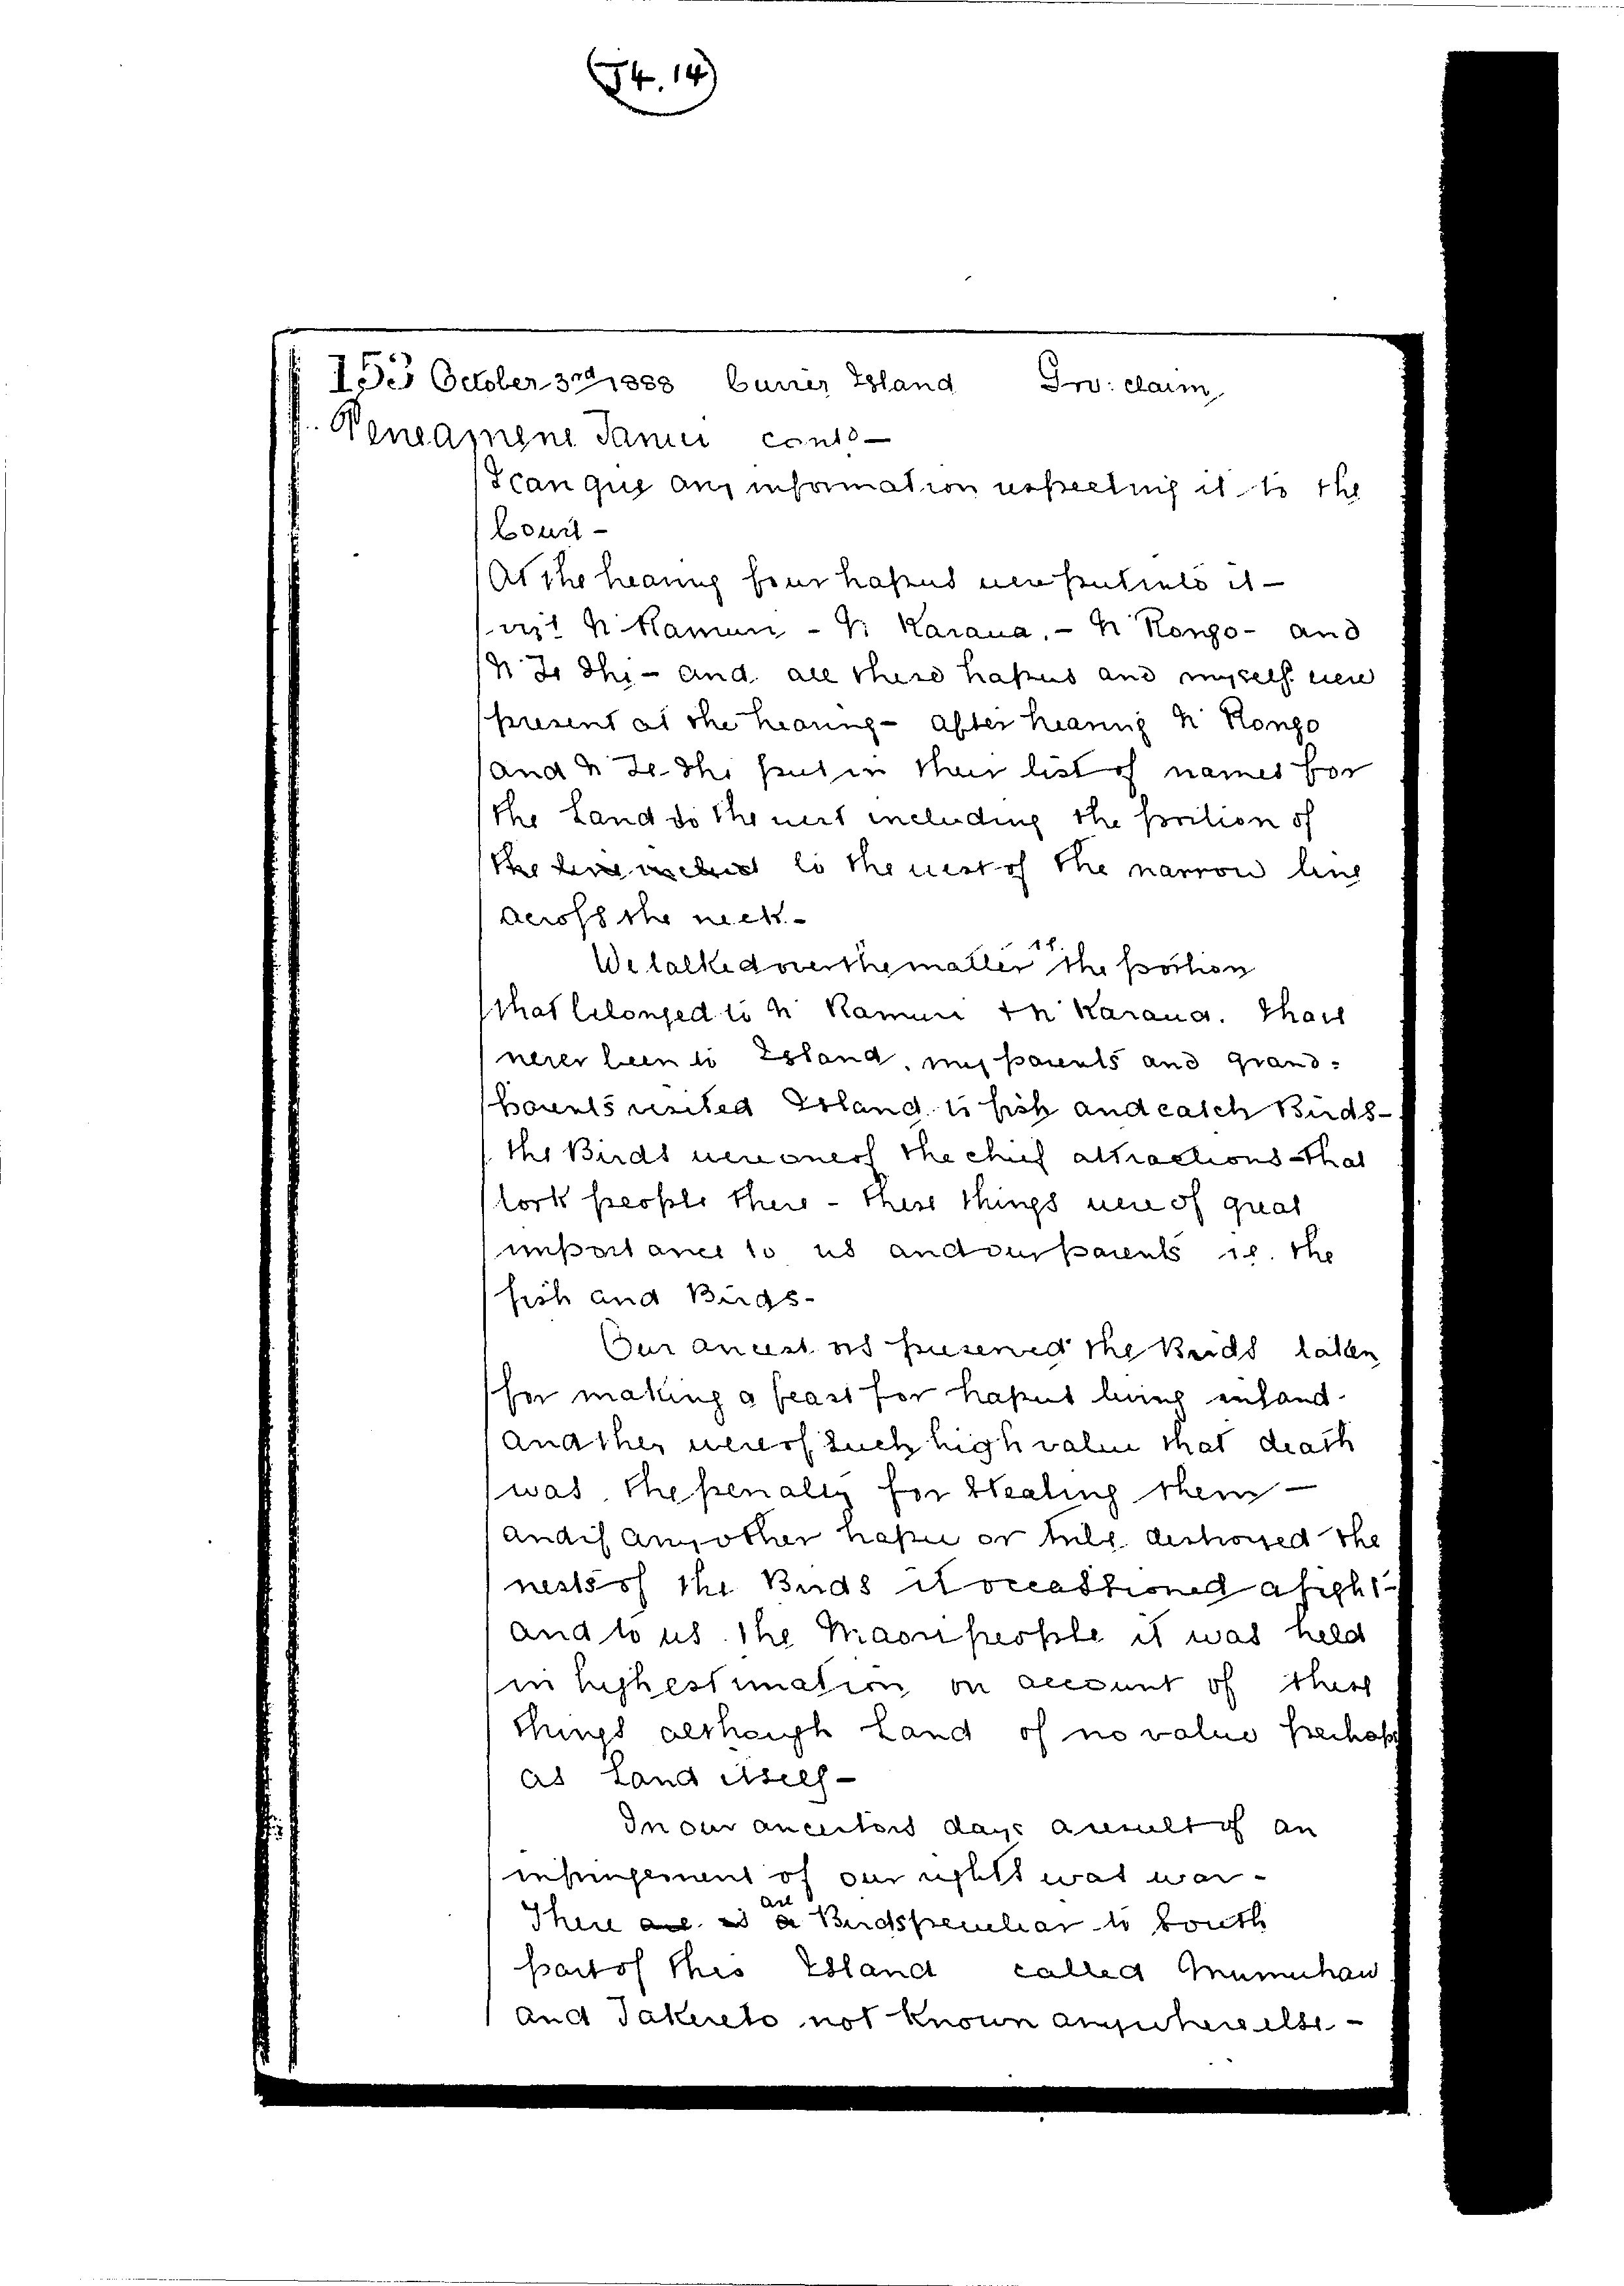 (J4.14)
153 October 3rd 1888 Cuvier Island Inv: claim
Peneamene Tanui contd —
I can give any information respecting it to the
Court -
At the hearing four hapus were put into it —
viz! N' Hamuri - N' Karaua. - N' Rongo - and
N' Te Ihi - and all these hapus and myself were
present at the hearing - after hearing N' Rongo
and N' Te Ihi put in their list of names for
the Land to the west including the portion of
the to the west of the narrow line
across the neck -
We talked over the matter ie. the portion
that belonged to N' Hamuri + N' Karaua. I have
never been to Island, my parents and grand=
parents visited Island to fish and catch Birds -
the Birds were one of the chief attractions - that
took people there - these things were of great
importance to us and our parents ie. the
fish and Birds -
Our ancestors preserved the Birds taken
for making a feast for hapus living inland -
and they were of such high value that death
was the penalty for stealing them —
and if any other hapu or tribe destroyed the
nests of the Birds it occasstioned a fight -
and to us the Maori people it was held
in high estimation on account of these
things although Land of no value perhaps
as Land itself —
In our ancestors days a result of an
infringement of our rights was war -
There are is are a Birds peculiar to South
part of this Island called Mumuhau
and Takereto not known anywhere else -